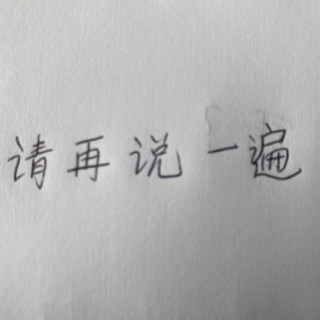 请再说一遍